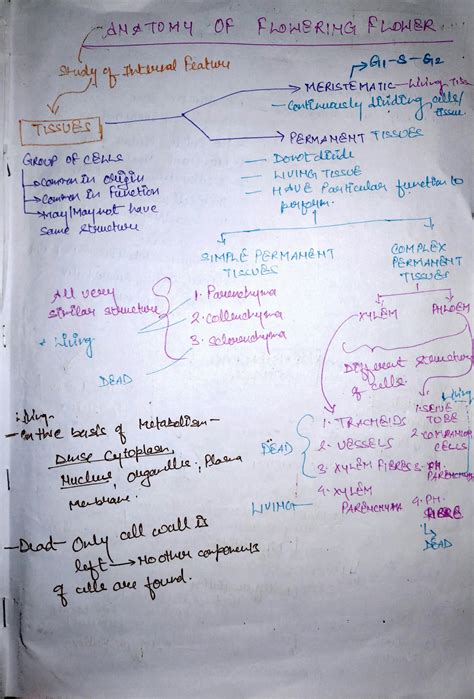 ANATOMY OF FLOWERING FLOWER
Study of Internal Feature
G1-S-G2
MERISTEMATIC - Living Tiss
- Continuously dividing cells/
tissue
TISSUES
PERMAMENT TISSUES
GROUP OF CELLS
- Donot divide
→ Common in origin
- LIVING TISSUE
→ Common in Function
- HAVE Particular function to
perform.
→ May/May not have
same structure
SIMPLE PERMAMENT
TISSUES
COMPLEX
PERMAMENT
TISSUES
All very
similar structure
1. Parenchyma
2. Collenchyma
3. Sclerenchyma
* Living
DEAD
XYLEM
PHLOEM
Different structure
of cells.
Living
DEAD
1. TRACHEIDS
2. VESSELS
3. XYLEM FIBRES
4. XYLEM
PARENCHYMA
LIVING
1. SIEVE
TUBE
2. COMPANION
CELLS
3. PH.
PARENCHYMA
4. PH.
FIBRE
DEAD
Living -
- On the basis of Metabolism -
Dense Cytoplasm,
Nucleus, organelles, Plasma
Membrane.
- Dead - Only cell wall is
left → No other components
of cells are found.